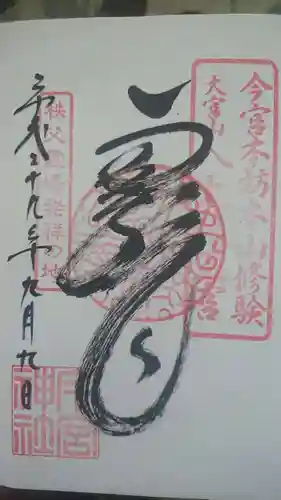 今宮本坊本山修験
大宮山
龍
秩父霊場発祥の地
平成二十九年九月九日
今宮神社